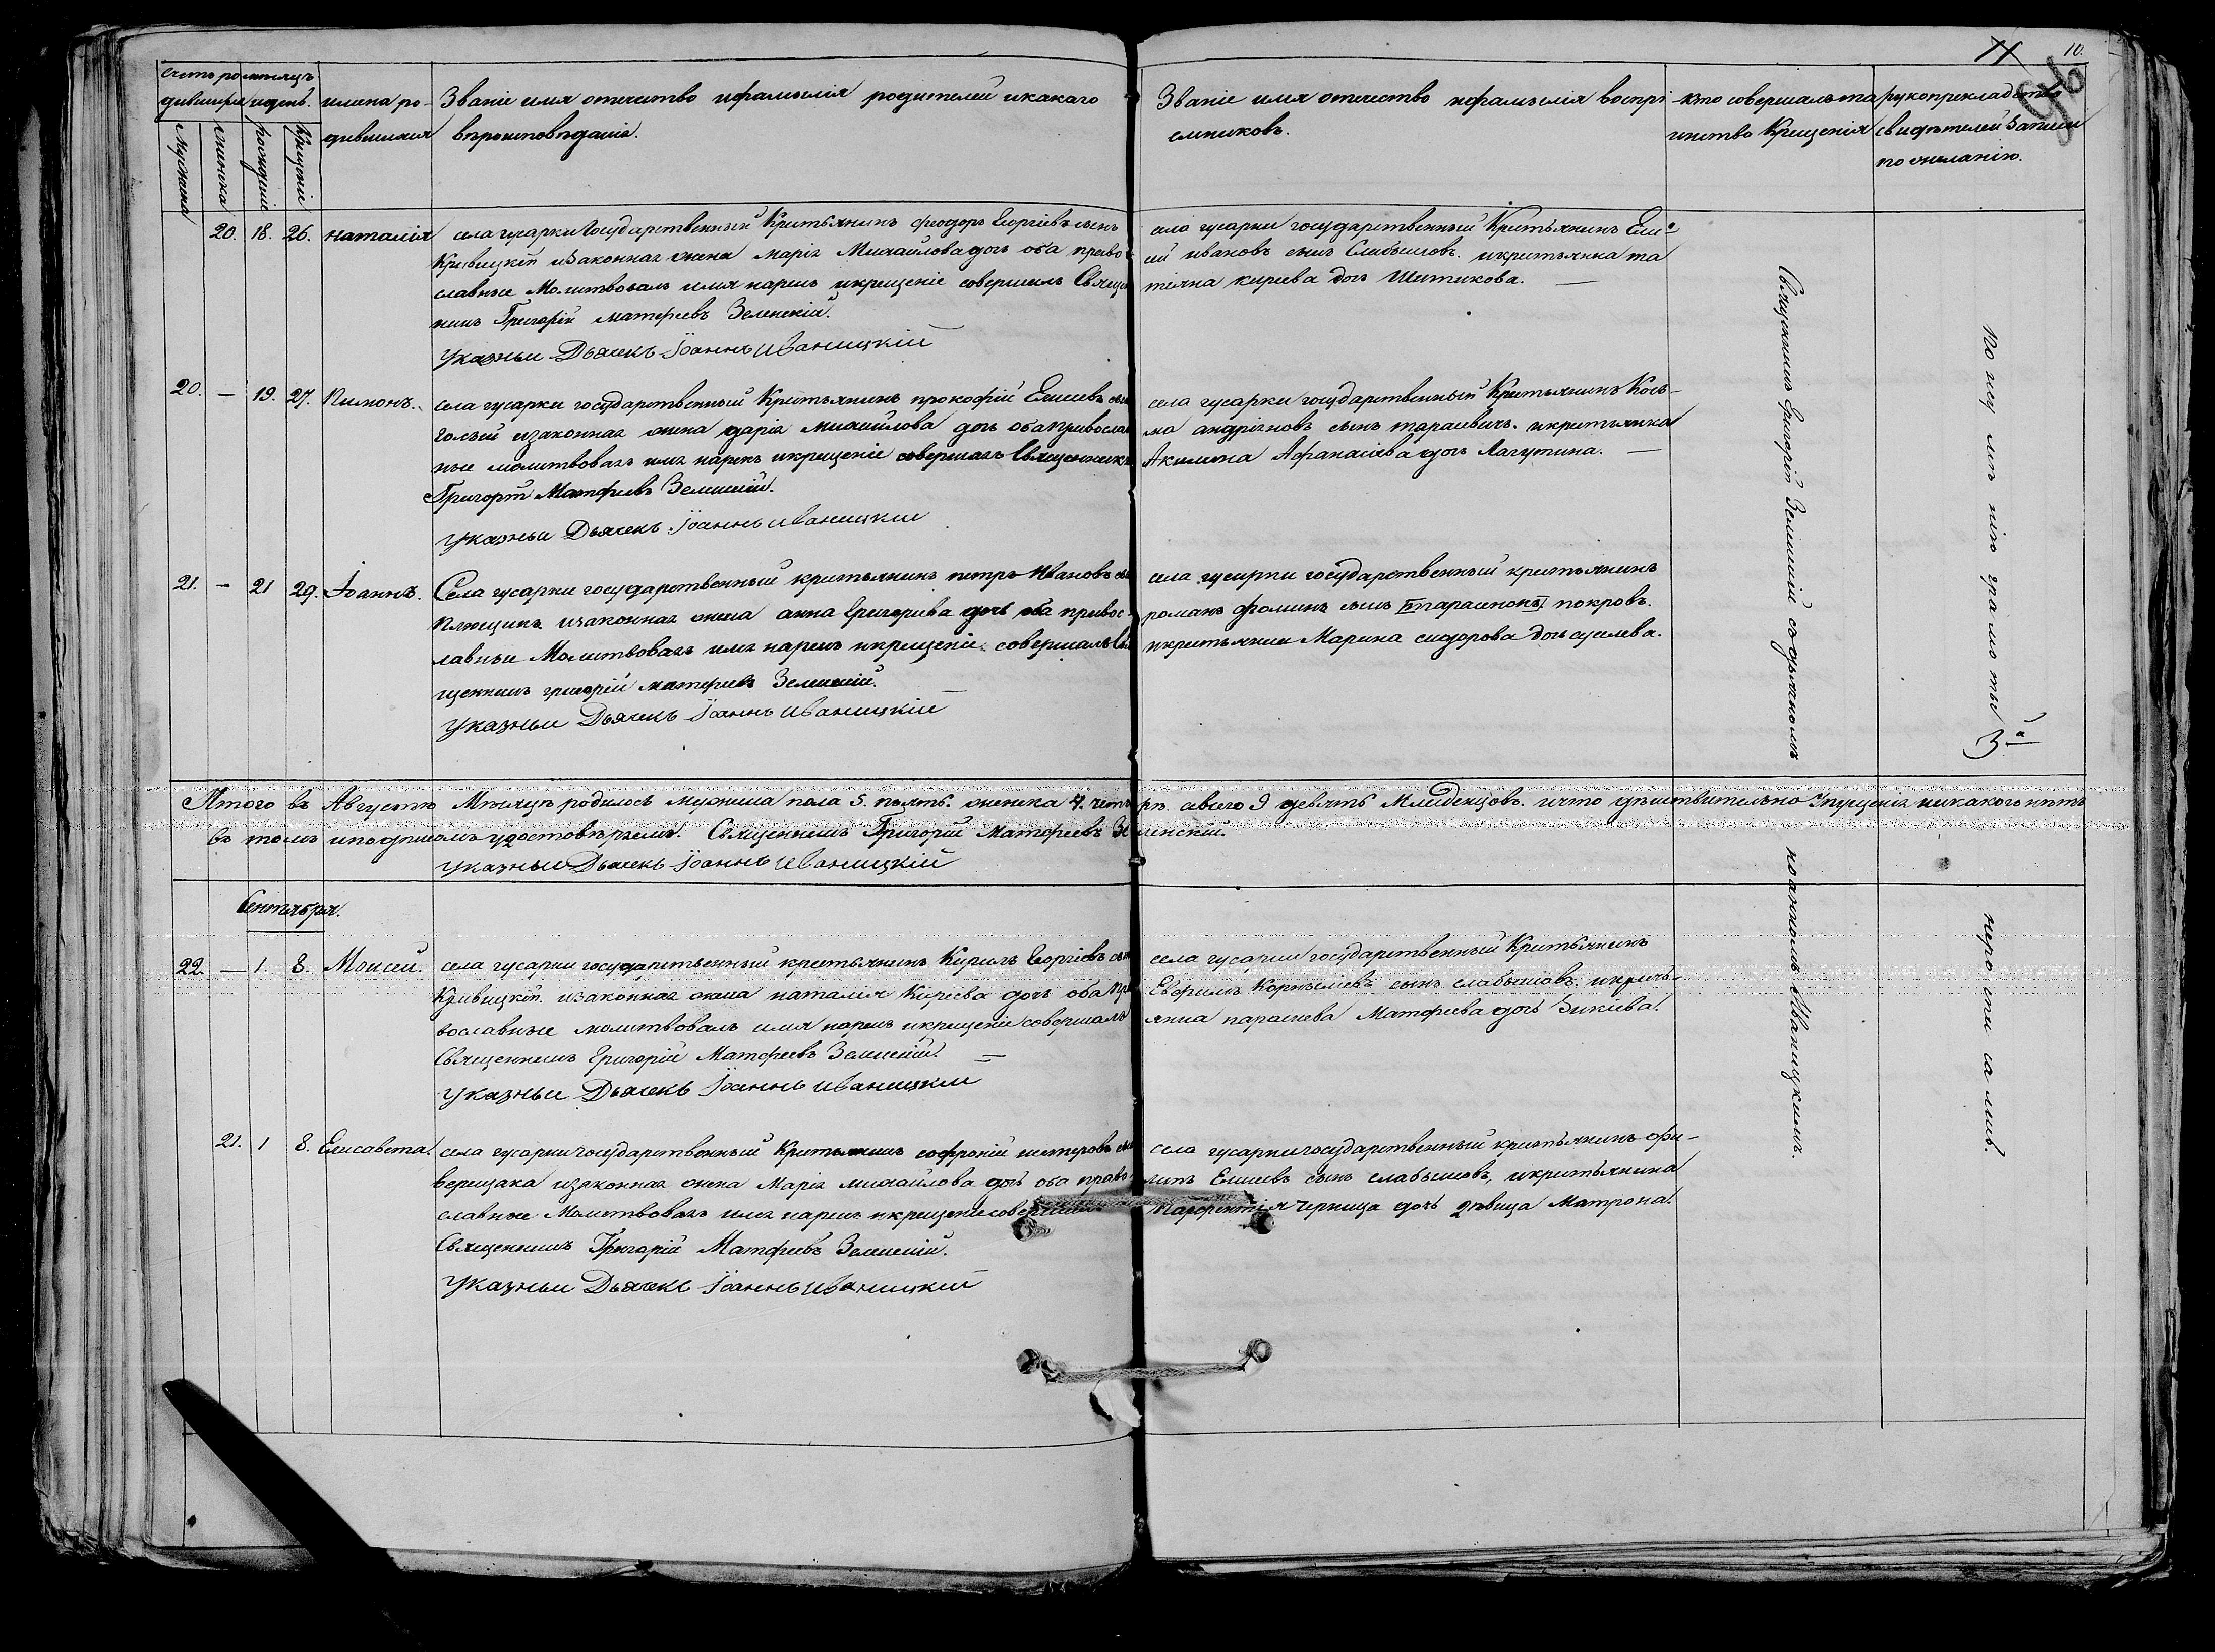 11 10.
Счетъ ро мѣсяцъ
дившихся идень. имена ро- Званіе имя отечество ифамилія родителей икакаго
Мужеска женска рожденіе крещеніе дившихся вѣроисповѣданія.
Званіе имя отечество ифамылія воспрі
емниковъ.
кто совершалъ та
инство Крещенія
рукоприкладство
свидѣтелей записи
по желанію.
20. 18. 26. наталія села гусарки Государственный Крестьянинъ феодоръ Георгіевъ сынъ
Кривицкій изаконная жена марія Михайлова дочь оба право
славные Молитвовалъ имя нарекъ икрещеніе совершилъ Свяще
никъ Григорій матфеевъ Зеленскій.
указный Дьячекъ Іоаннъ Иваницкій
села гусарки государственный Крестьянинъ Ели-
сей ивановъ сынъ Слабышовъ. икрестьянка та
тіяна киреева дочь Шитикова.
20. — 19. 27. Пимонъ. села гусарки государственный Крестьянинъ прокофій Елисеевъ сын
Голый изаконная жена дарія михайлова дочь оба православ
ные молитвовалъ имя нарекъ икрещеніе совершалъ Священникъ
Григорій Матфеевъ Зеленскій.
указный Дьячекъ Іоаннъ Иваницкій
села гусарки государственный Крестьянинъ Козь-
ма андріяновъ сынъ тарасевичь. икрестьянка
Акилина Афанасіева дочь Лагутина.
21. — 21 29. Іоаннъ. Села гусарки государственный крестьянинъ петръ Ивановъ сы
Плющикъ изаконная жена анна Григорьева дочь оба правос-
лавные Молитвовалъ имя нарекъ икрещеніе совершалъ Свя
щенникъ григорій матфеевъ Зеленскій.
указный Дьячекъ Іоаннъ Иваницкій
села гусарки государственный крестьянинъ
романъ фоминъ сынъ тарасенокъ покровъ.
икрестьянка Марина сидорова дочь
Итого въ Августѣ Мѣсяцѣ родилось мужеска пола 5. пять. женска 4. четыре. авсего 9 девять Младенцовъ. ичто дѣйствительно упущенія никакого нѣтъ
въ томъ иподписомъ удостовѣряемъ. Священникъ Григорій Матфеевъ Зеленскій.
указный Дьячекъ Іоаннъ Иваницкій
Сентября.
22. — 1. 8. Моисей. села гусарки государственный крестьянинъ Кирилъ Георгіевъ сын
Кривицкій. изаконная жена наталія Киреева дочь оба пра
вославные молитвовалъ имя нарекъ икрещеніе совершалъ
Священникъ Григорій Матфеевъ Зеленскій.
указный Дьячекъ Іоаннъ Иваницкій
села гусарки государственный Крестьянинъ
Евфимъ Корнѣліевъ сынъ слабышовъ. икресть-
янка параскева Матфеева дочь Зикѣева.
21. 1 8. Елисавета. села гусарки государственный Крестьянинъ софроній нестеровъ сын
верещака изаконная жена Марія михайлова дочь оба право
славные Молитвовалъ имя нарекъ икрещеніе совершилъ
Священникъ Григорій Матфеевъ Зеленскій.
указный Дьячекъ Іоаннъ Иваницкій
села гусарки государственный крестьянинъ фи-
липъ Елисеевъ сынъ слабышовъ, икрестьянина
Терентія черница дочь дѣвица Матрона.
Священникъ Григорій Зеленскій содьячкомъ
Іоанномъ Иваницкимъ.
По неу мѣ нію грамоты